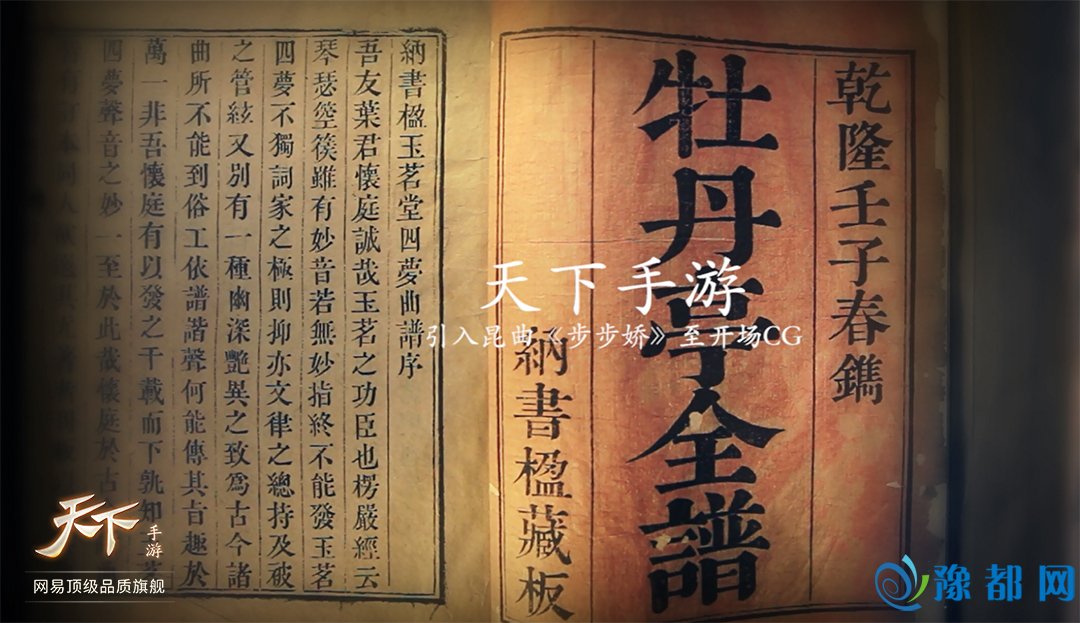 乾隆壬子春鐫
牡丹亭全譜
納書楹藏板
天下手游
引入昆曲《步步娇》至开场CG
納書楹玉茗堂四夢曲譜序
吾友葉君懷庭誠哉玉茗之功臣也楞嚴經云
琴瑟箜篌雖有妙音若無妙指終不能發玉茗
四夢不獨詞家之極則抑亦文律之總持及被
之管絃又別有一種幽深艷異之致為古今諸
曲所不能到俗工依譜諧聲何能傳其旨趣於
萬一非吾懷庭有以發之千載而下孰知
四夢聲音之妙一至於此哉懷庭於古
天下
手游
网易顶级品质旗舰
豫都网